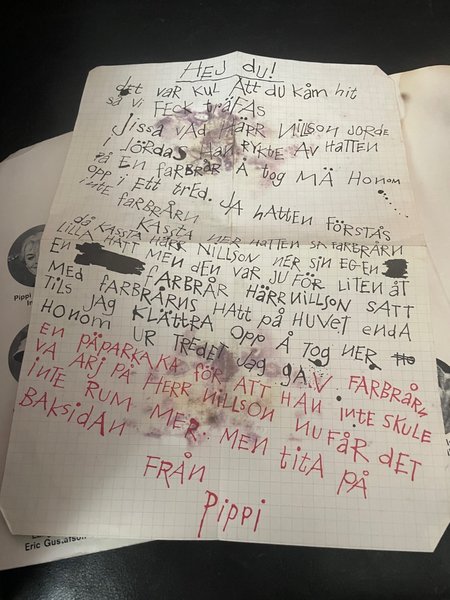 HEJ DU!
det var KUL ATT du KåM hit
så vi FECK träFAS
Jissa vad HÄRR NILLSON JORDE
I JÖRDAS HAN RYKTE AV HATTEN
På EN FARBRÅR Å tog MÄ HONOM
OPP i ETT TRED. JA HATTEN FÖRSTÅS
iNTE FARBRÅRN
då KASSTA NER HATTEN SA FARBRÅRN
då KASSTA HÄRR NILLSON NER SIN EGEN
LILLA HATT MEN dEN VAR JU FÖR LITEN åT
EN FARBRÅR HÄRR NILLSON SATT
MED FARBRÅRNS HATT på HUVET ENdA
TILS JAG KLÄTTRA OPP Å TOG NER
HONOM UR TREDET JAG GA.V FARBRÅRN
EN PÄPARKAKA FÖR ATT HAN iNTE SKULE
VA ARJ PÅ HERR NILLSON NU FÅR DET
iNTE RUM MER MEN TITA PÅ
BAKSIDAN
FRÅN
Pippi
Pippi
Eric Gustafson